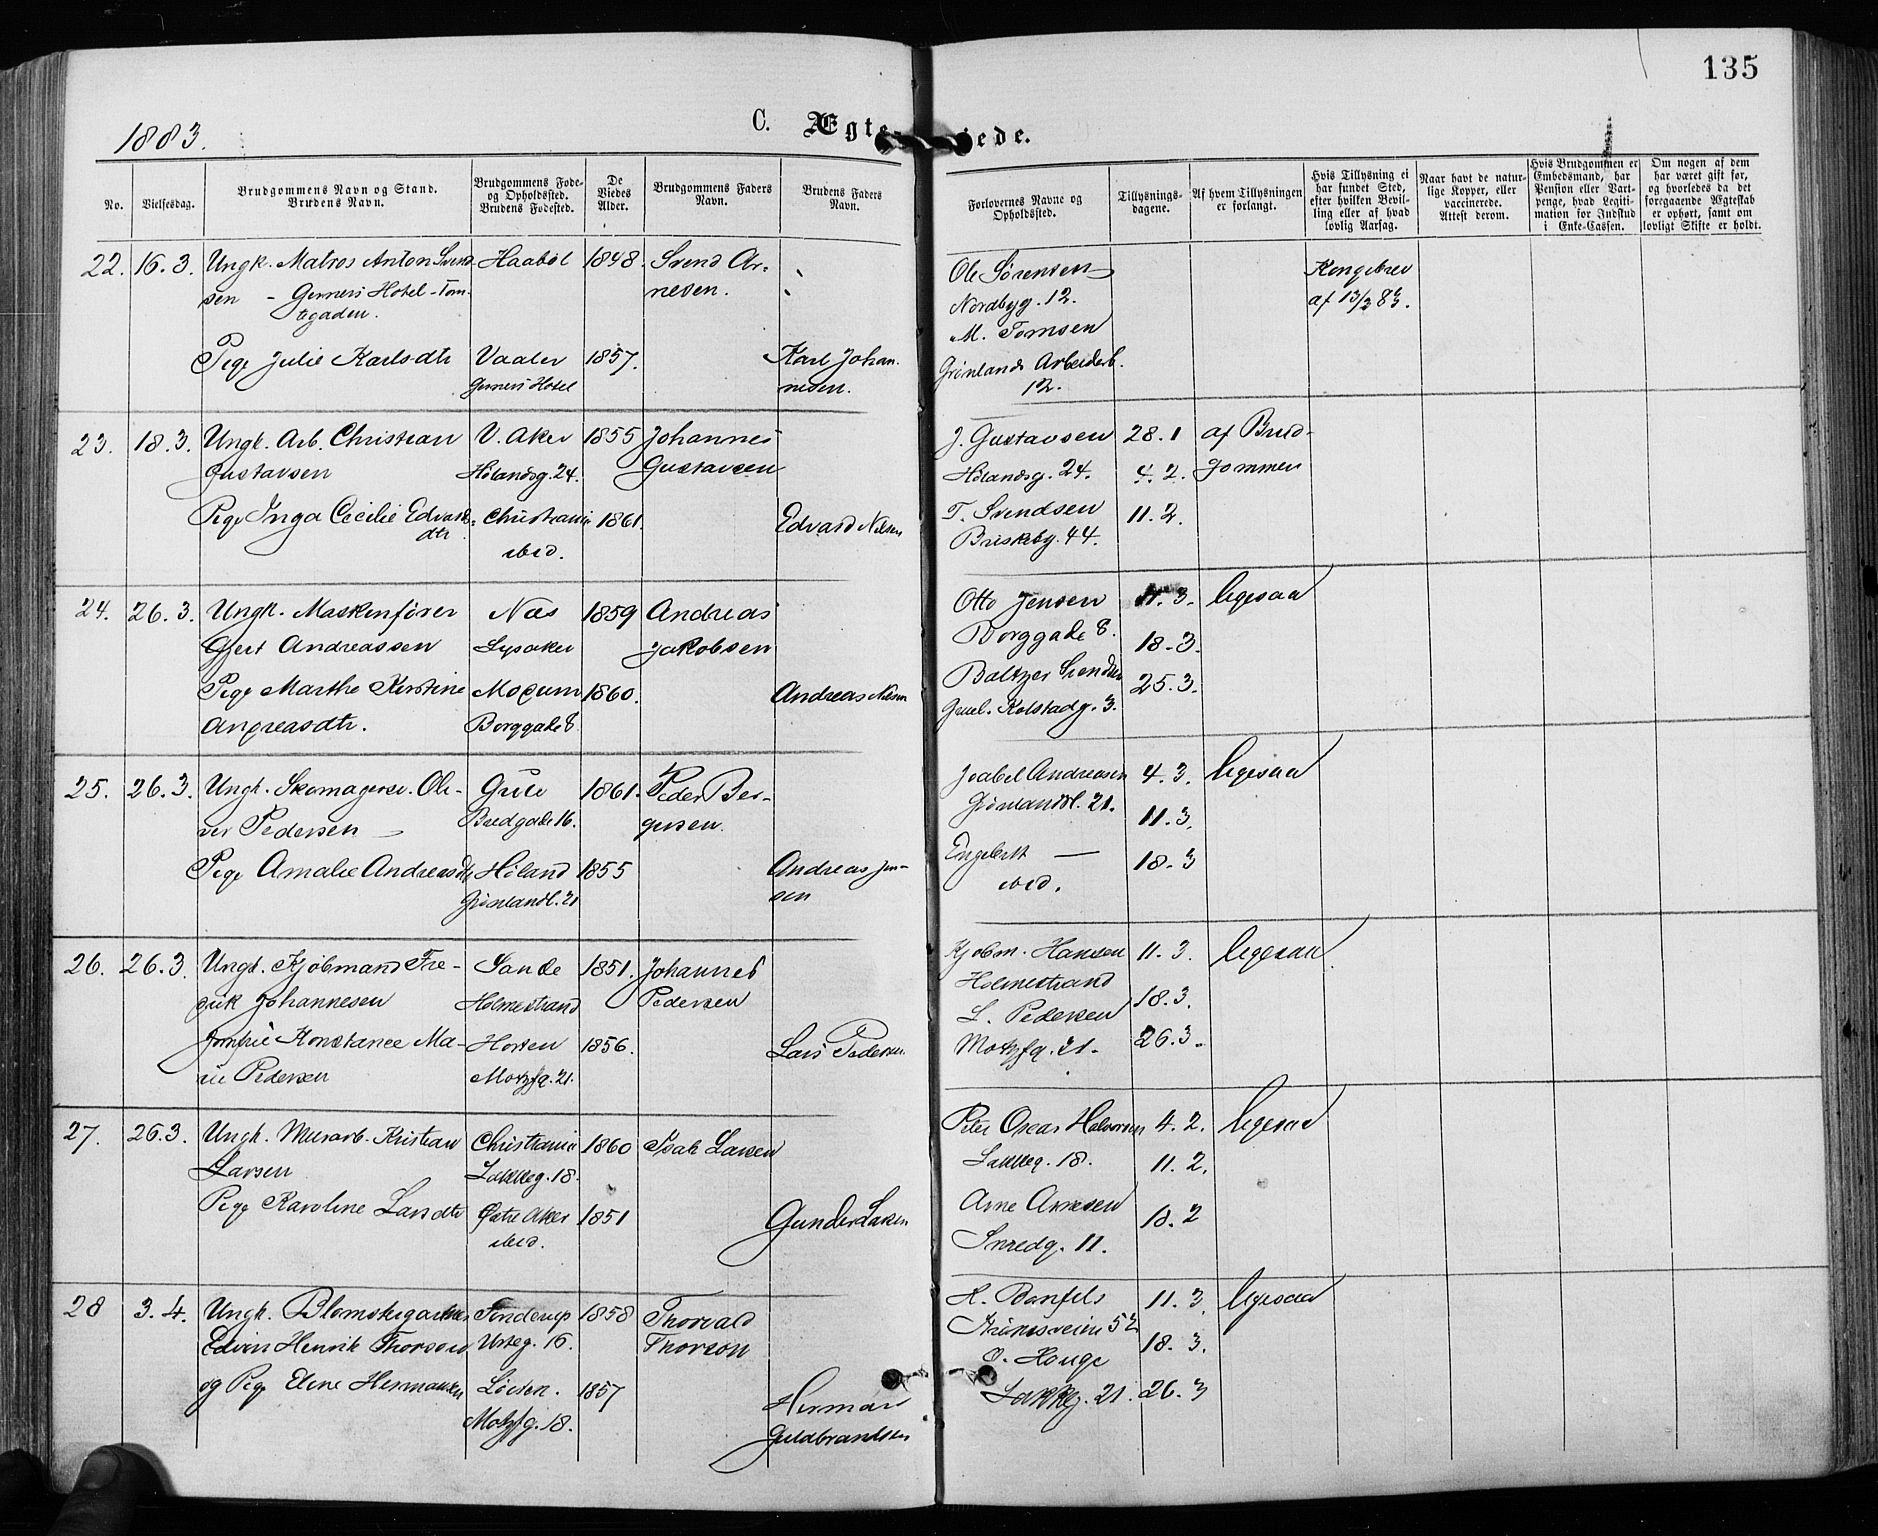 135
1883.
C. Ægte
iede.
No.
Vielsesdag.
Brudgommens Navn og Stand.
Brudens Navn.
Brudgommens Føde-
og Opholdssted.
Brudens Fødested.
De
Viedes
Alder.
Brudgommens Faders
Navn.
Brudens Faders
Navn.
Forlovernes Navne og
Opholdssted.
Tillysnings-
dagene.
Af hvem Tillysningen
er forlangt.
Hvis Tillysning ei
har fundet Sted,
efter hvilken Bevil-
ling eller af hvad
lovlig Aarsag.
Naar havt de natur-
lige Kopper, eller
vaccinerede.
Attest derom.
Hvis Brudgommen er
Embedsmand, har
Pension eller Vart-
penge, hvad Legiti-
mation for Indskud
i Enke-Cassen.
Om nogen af dem
har været gift før,
og hvorledes da det
foregaaende Ægteskab
er ophørt, samt om
lovligt Skifte er holdt.
22. 16. 3. Ungk. Matros Anton Svend- Haabøl 1848. Svend Ar-
sen - Gerners Hotel - Tom- nesen.
tegaden.
Pige Julie Karlsdtr Vaaler 1857. Karl Johan-
Gerners Hotel nesen.
Ole Sørensen
Nordbyg. 12.
M. Tomsen
Grønlands Arbeiderb.
12.
Kongebrev
af 13/3 83.
23. 18. 3. Ungk. Arb. Christian V. Aker 1855 Johannes
Gustavsen Hølandsg. 24. Gustavsen
Pige Inga Cecilie Edvards- Christiania 1861. Edvard Nilsen
dtr. ibid.
J. Gustavsen 28. 1 af Brud-
Hølandsg. 24. 4. 2. gommen
T. Svendsen 11. 2.
Briskeby. 44.
24. 26. 3. Ungk. Maskenfører Næs 1859 Andreas
Gjert Andreassen Lysaker Jakobsen
Pige Marthe Kirstine Modum 1860. Andreas Nilsen
Andreasdtr. Borggade 8
Otto Jensen 11. 3. ligesaa
Borggade 8. 18. 3.
Baltzer Svendsen 25. 3.
Kolstadg. 3.
25. 26. 3. Ungk. Skomagersv. Oli- 1861. Peder Ber-
ver Pedersen Bredgade 16. gersen.
Pige Amalie Andreasdtr Høland 1855 Andreas Jen-
Grønlandsl. 21 sen
Isabel Andreasen 4. 3. ligesaa
Grønlandsl. 21. 11. 3.
Engebret — 18. 3
ibid.
26. 26. 3. Ungk. Kjøbmand Fre- Sande 1851. Johannes
drik Johannesen Holmestrand Pedersen
Jomfru Konstance Ma- Horten 1856. Lars Pedersen
rie Pedersen Motzfg. 21.
Kjøbm. Hansen 11. 3. ligesaa
Holmestrand 18. 3.
L. Pedersen
Motzfg. 21. 26. 3.
27. 26. 3. Ungk. Murarb. Kristian Christiania 1860 Isak Larsen
Larsen Lakkeg. 18.
Pige Karoline Larsdtr Østre Aker 1851 Gunder Larsen
ibid.
Peter Oscar Halvorsen 4. 2. ligesaa
Lakkeg. 18. 11. 2.
Arne Arnesen 18. 2
Smedg. 11.
28 3. 4. Ungk. Blomstergartner 1858 Thorvald
Edvin Henrik Thorson Urteg. 16. Thorson
og Pige Eline Hermansen Løiten. 1857 Herman
Motzfg. 18. Guldbrandsen
H. 11. 3. ligesaa
52 18. 3.
O. Hauge
Lakkeg. 21. 26. 3